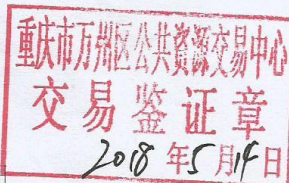 重庆市万州区公共资源交易中心
交易鉴证章
2018年5月14日